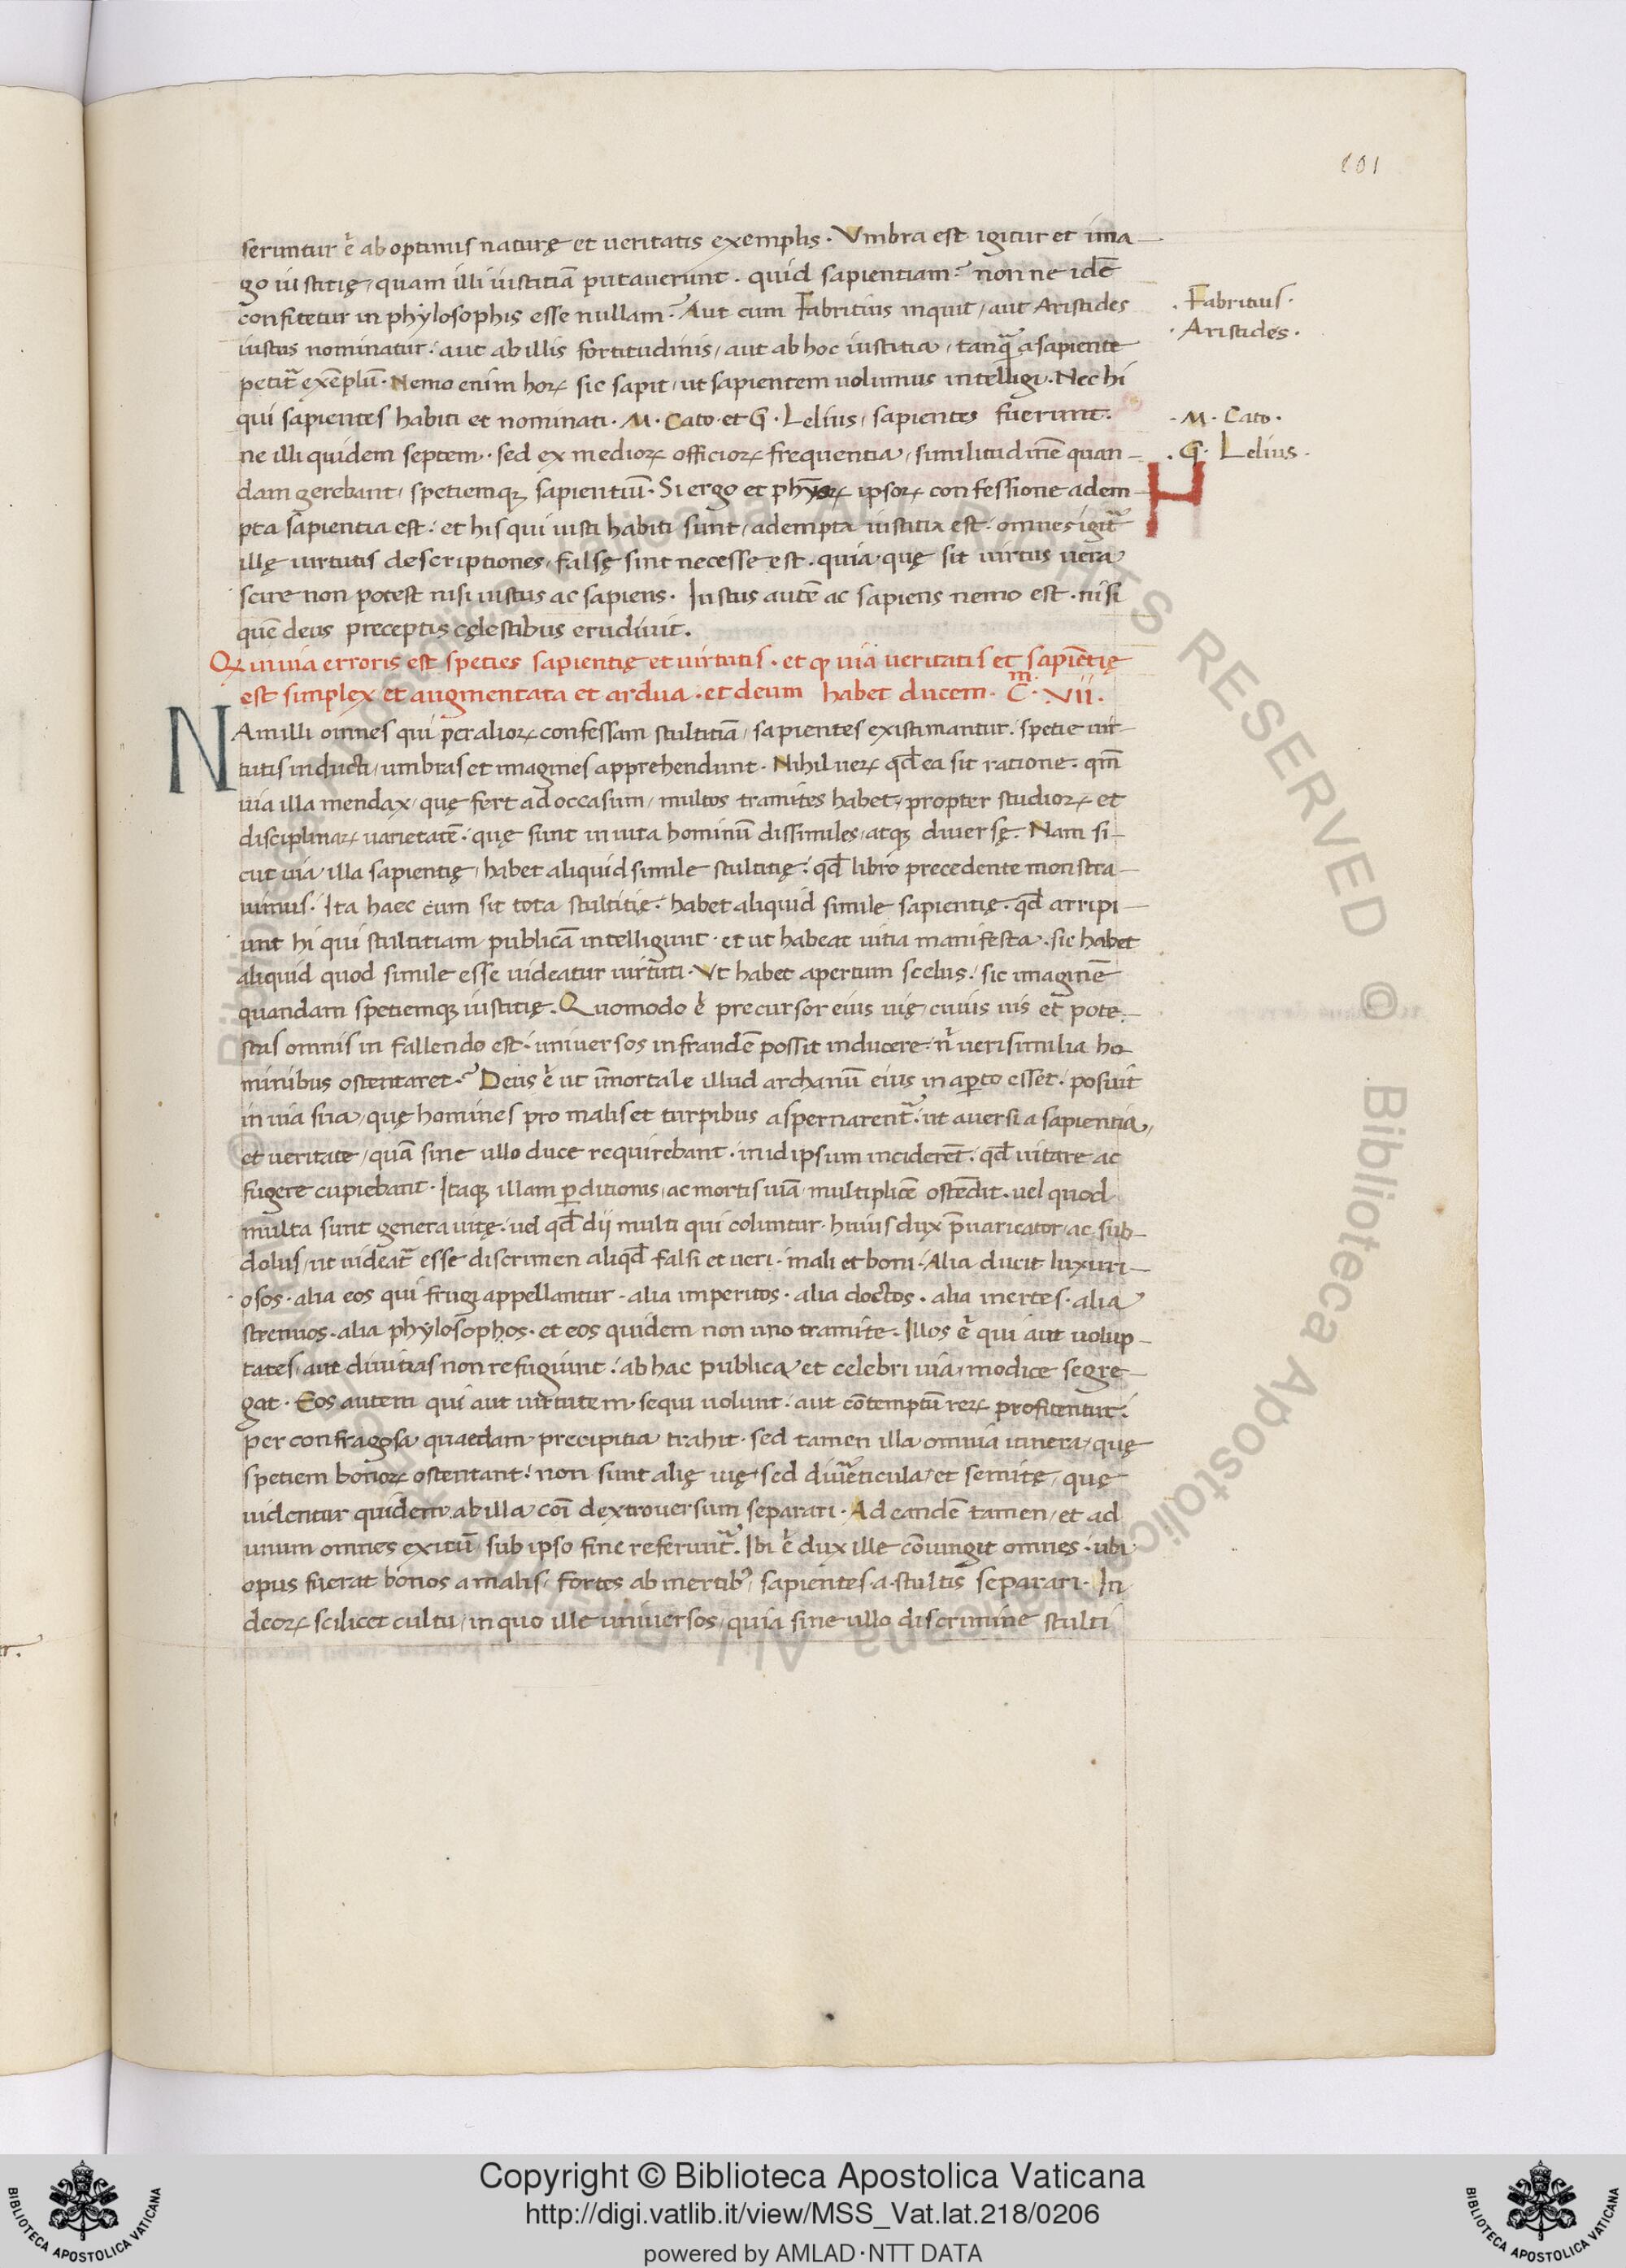 101
seruntur ẻ ab optimis naturę et ueritatis exemplis. Vmbra est igitur et ima-
go iustitię, quam illi iustitiā putauerunt. quid sapientiam? non ne idē
confitetur in phylosophis esse nullam? Aut cum Fabritius inquit, aut Aristides
iustus nominatur. aut ab illis fortitudinis, aut ab hoc iustitia, tanq̃ a sapiente
petit᷑ exēplū. Nemo enim hoꝝ sic sapit, ut sapientem uolumus intelligi. Nec hi
qui sapientes habiti et nominati. M. Cato. et G. Lelius, sapientes fuerunt.
ne illi quidem septem. sed ex medioꝝ officioꝝ frequentia, similitudinē quan-
dam gerebant, spetiemqꝫ sapientiū. Si ergo et phỹoꝝ ipsoꝝ confessione adem-
pta sapientia est. et his qui iusti habiti sunt, adempta iustitia est. omnes igit᷑
illę uirtutis descriptiones, falsę sint necesse est. quia quę sit uirtus uera
scire non potest nisi iustus ac sapiens. Iustus autē ac sapiens nemo est. nisi
quē deus preceptis cęlestibus erudiuit.
Qꝫ in uia erroris est species sapientię et uirtutis. et ꝙ uia ueritatis et sapiētię
est simplex et augmentata et ardua. et deum habet ducem. C.m VII.
NAm illi omnes qui per alioꝝ confessam stultitiā, sapientes existimantur. spetie uir-
tutis inducti, umbras et imagines apprehendunt. Nihil ueꝝ qđ ea fit ratione. qm̄
uia illa mendax, quę fert ad occasum, multos tramites habet, propter studioꝝ et
disciplinaꝝ uarietatē. quę sunt in uita hominū dissimiles, atqꝫ diuersę. Nam si-
cut uia illa sapientię, habet aliquid simile stultitię. qđ libro precedente monstra-
uimus. Ita haec cum sit tota stultitię. habet aliquid simile sapientię. qđ arripi-
unt hi qui stultitiam publicā intelligunt. et ut habeat uitia manifesta. sic habet
aliquid quod simile esse uideatur uirtuti. Vt habet apertum scelus. sic imaginē
quandam spetiemqꝫ iustitię. Quomodo ẻ precursor eius uię, cuius uis et pote-
stas omnis in fallendo est. uniuersos in fraudē possit inducere. nỉ uerisimilia ho-
minibus ostentaret? Deus ẻ ut īmortale illud archanū eius in aꝑto esset. posuit
in uia sua, quę homines pro malis et turpibus aspernarent᷑. ut auersi a sapientia,
et ueritate, quā sine ullo duce requirebant. in id ipsum inciderēt. qđ uitare ac
fugere cupiebant. Itaqꝫ illam ꝑditionis, ac mortis uiā, multiplicē ostēdit. uel quod
multa sunt genera uitę. uel qđ dij multi qui coluntur. huius dux p̄uaricator, ac sub-
dolus, ut uideat᷑ esse discrimen aliqđ falsi et ueri. mali et boni. Alia ducit luxuri-
osos. alia eos qui frugi appellantur. alia imperitos. alia doctos. alia inertes. alia
strenuos. alia phylosophos. et eos quidem non uno tramite. Illos ẻ qui aut uolup-
tates, aut diuitias non refugiunt. ab hac publica et celebri uia, modice segre-
gat. Eos autem qui aut uirtutem sequi uolunt. aut cōtemptū reꝝ profitentur.
per confragosa quaedam precipitia trahit. sed tamen illa omnia itinera, quę
spetiem bonoꝝ ostentant. non sunt alię uię, sed diu᷑ticula, et semitę, quę
uidentur quidem ab illa coī dextrouersum separari. Ad eandē tamen, et ad
unum omnes exitū, sub ipso fine referunt᷑. Ibi ẻ dux ille cōiungit omnes. ubi
opus fuerat bonos a malis, fortes ab inertibꝰ, sapientes a stultis separari. In
deoꝝ scilicet cultu, in quo ille uniuersos, quia sine ullo discrimine stulti
. Fabritius.
. Aristides.
. M. Cato.
. G. Lelius.
Copyright © Biblioteca Apostolica Vaticana
http://digi.vatlib.it/view/MSS_Vat.lat.218/0206
powered by AMLAD·NTT DATA
BIBLIOTECA APOSTOLICA VATICANA
BIBLIOTECA APOSTOLICA VATICANA